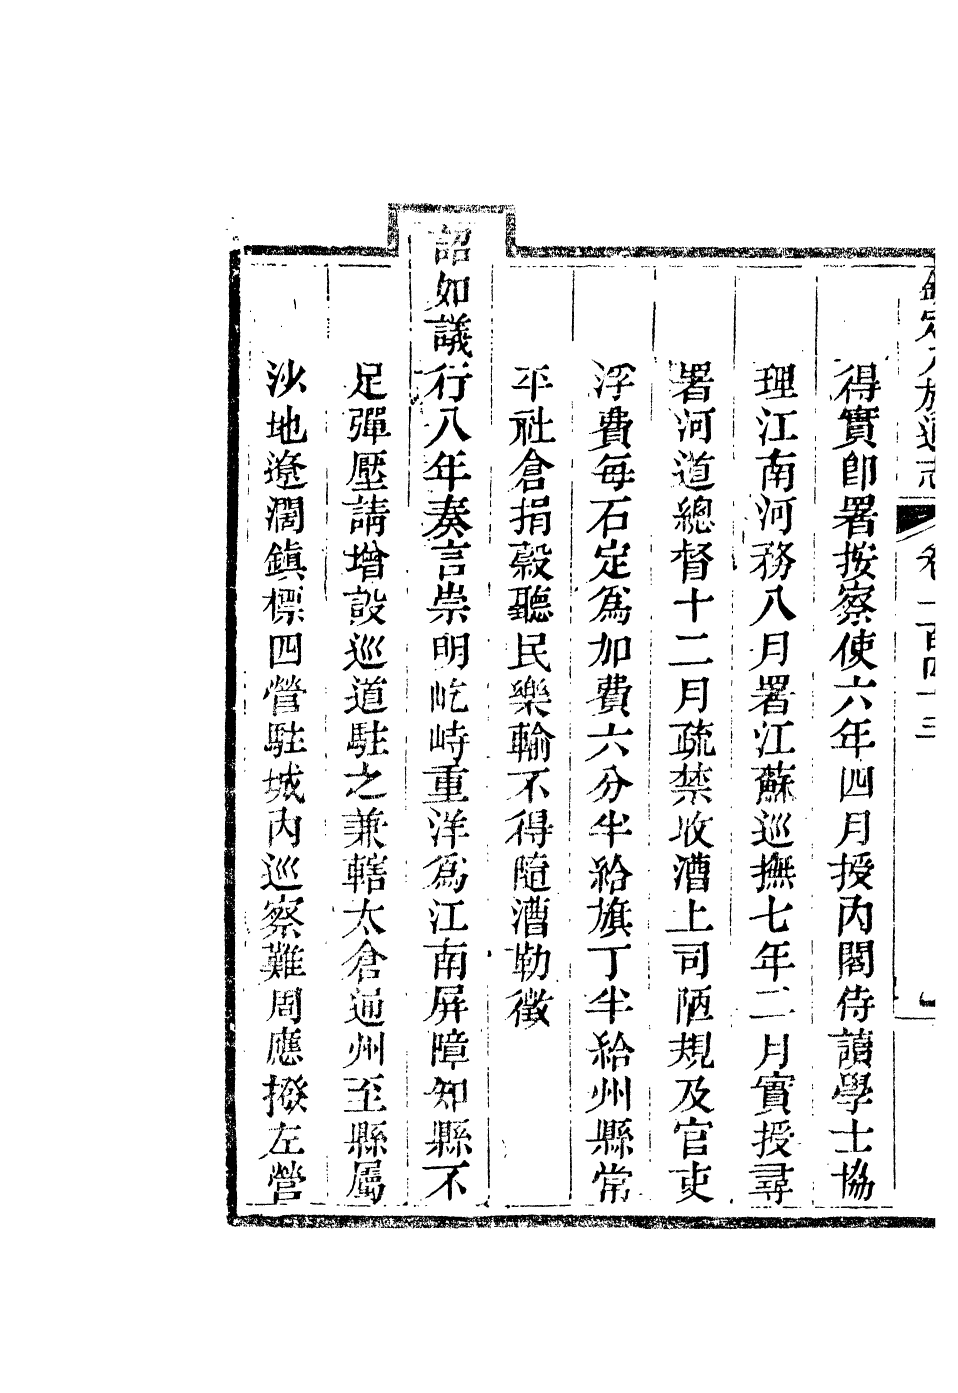 欽定八旗通志 卷二百四十三
得實卽署按察使六年四月授內閣侍讀學士協
理江南河務八月署江蘇巡撫七年二月實授尋
署河道總督十二月疏禁收漕上司陋規及官吏
浮費每石定爲加費六分半給旗丁半給州縣常
平社倉捐穀聽民樂輸不得隨漕勒徵
詔如議行八年奏言崇明屹峙重洋爲江南屏障知縣不
足彈壓請增設巡道駐之兼轄太倉通州至縣屬
沙地遼濶鎮標四營駐城內巡察難周應撥左營